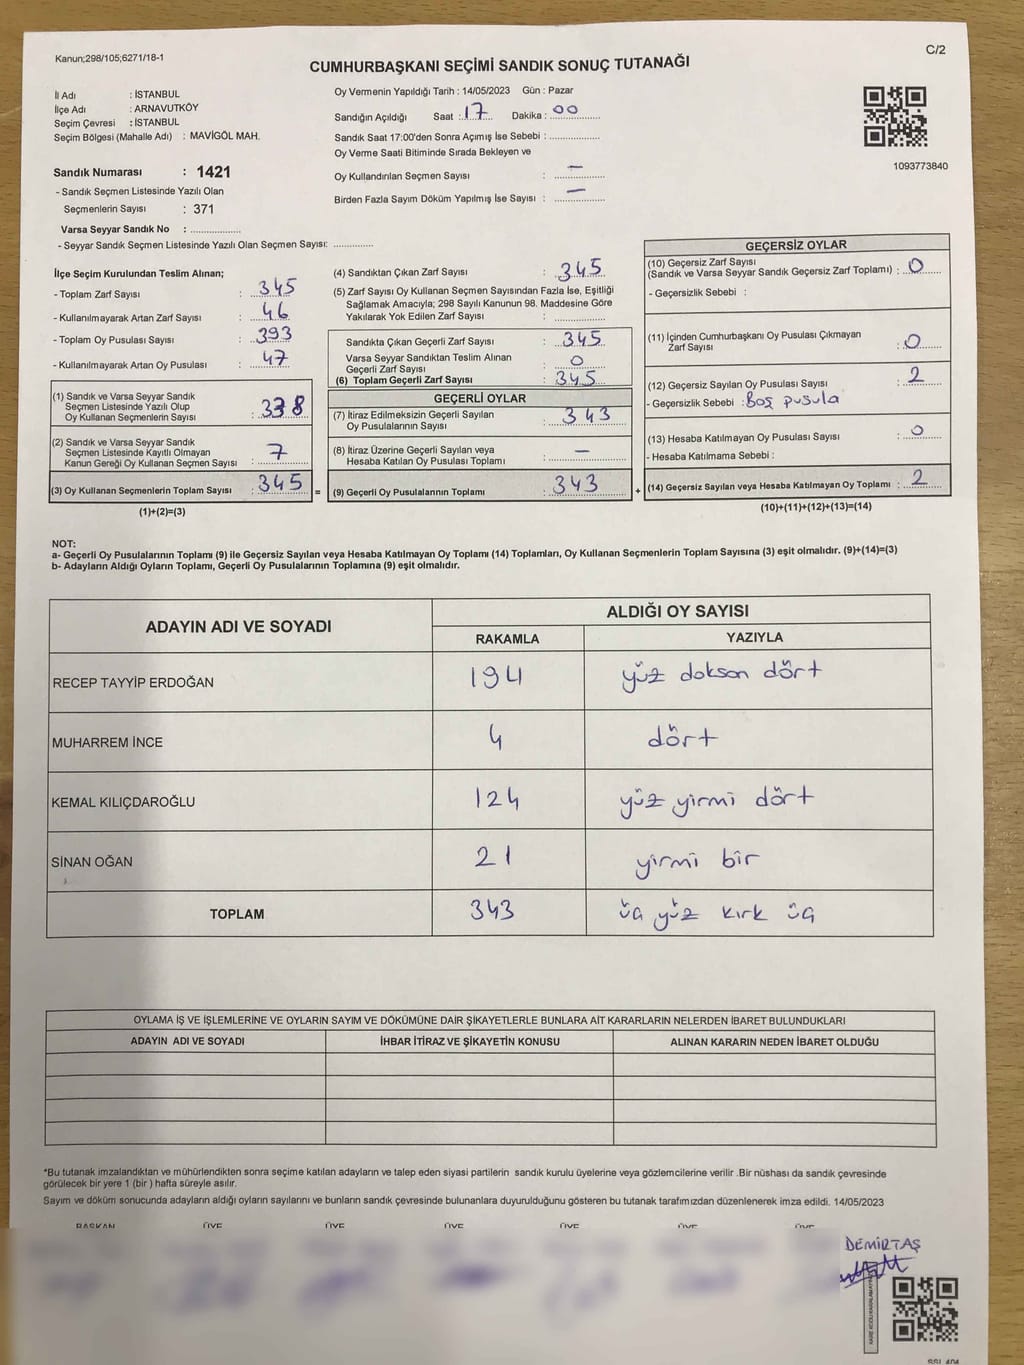 Kanun;298/105;6271/18-1
C/2
CUMHURBAŞKANI SEÇİMİ SANDIK SONUÇ TUTANAĞI
İl Adı : İSTANBUL
İlçe Adı : ARNAVUTKÖY
Seçim Çevresi : İSTANBUL
Seçim Bölgesi (Mahalle Adı) : MAVİGÖL MAH.
Sandık Numarası : 1421
- Sandık Seçmen Listesinde Yazılı Olan
Seçmenlerin Sayısı : 371
Varsa Seyyar Sandık No : ....................
- Seyyar Sandık Seçmen Listesinde Yazılı Olan Seçmen Sayısı: ...............
Oy Vermenin Yapıldığı Tarih : 14/05/2023 Gün : Pazar
Sandığın Açıldığı Saat : 17 Dakika : 00
Sandık Saat 17:00'den Sonra Açımış İse Sebebi : ....................
Oy Verme Saati Bitiminde Sırada Bekleyen ve
Oy Kullandırılan Seçmen Sayısı : —
Birden Fazla Sayım Döküm Yapılmış İse Sayısı : —
1093773840
İlçe Seçim Kurulundan Teslim Alınan;
- Toplam Zarf Sayısı : 345
- Kullanılmayarak Artan Zarf Sayısı : 46
- Toplam Oy Pusulası Sayısı : 393
- Kullanılmayarak Artan Oy Pusulası : 47
(1) Sandık ve Varsa Seyyar Sandık
Seçmen Listesinde Yazılı Olup
Oy Kullanan Seçmenlerin Sayısı : 338
(2) Sandık ve Varsa Seyyar Sandık
Seçmen Listesinde Kayıtlı Olmayan
Kanun Gereği Oy Kullanan Seçmen Sayısı : 7
(3) Oy Kullanan Seçmenlerin Toplam Sayısı : 345 =
(1)+(2)=(3)
(4) Sandıktan Çıkan Zarf Sayısı : 345
(5) Zarf Sayısı Oy Kullanan Seçmen Sayısından Fazla İse, Eşitliği
Sağlamak Amacıyla; 298 Sayılı Kanunun 98. Maddesine Göre
Yakılarak Yok Edilen Zarf Sayısı : ....................
Sandıkta Çıkan Geçerli Zarf Sayısı : 345
Varsa Seyyar Sandıktan Teslim Alınan
Geçerli Zarf Sayısı : 0
(6) Toplam Geçerli Zarf Sayısı : 345
GEÇERLİ OYLAR
(7) İtiraz Edilmeksizin Geçerli Sayılan
Oy Pusulalarının Sayısı : 343
(8) İtiraz Üzerine Geçerli Sayılan veya
Hesaba Katılan Oy Pusulası Toplamı : —
(9) Geçerli Oy Pusulalarının Toplamı : 343 +
GEÇERSİZ OYLAR
(10) Geçersiz Zarf Sayısı
(Sandık ve Varsa Seyyar Sandık Geçersiz Zarf Toplamı) : 0
- Geçersizlik Sebebi :
(11) İçinden Cumhurbaşkanı Oy Pusulası Çıkmayan
Zarf Sayısı : 0
(12) Geçersiz Sayılan Oy Pusulası Sayısı : 2
- Geçersizlik Sebebi : Boş pusula
(13) Hesaba Katılmayan Oy Pusulası Sayısı : 0
- Hesaba Katılmama Sebebi :
(14) Geçersiz Sayılan veya Hesaba Katılmayan Oy Toplamı : 2
(10)+(11)+(12)+(13)=(14)
NOT:
a- Geçerli Oy Pusulalarının Toplamı (9) ile Geçersiz Sayılan veya Hesaba Katılmayan Oy Toplamı (14) Toplamları, Oy Kullanan Seçmenlerin Toplam Sayısına (3) eşit olmalıdır. (9)+(14)=(3)
b- Adayların Aldığı Oyların Toplamı, Geçerli Oy Pusulalarının Toplamına (9) eşit olmalıdır.
ADAYIN ADI VE SOYADI
ALDIĞI OY SAYISI
RAKAMLA YAZIYLA
RECEP TAYYİP ERDOĞAN 194 yüz doksan dört
MUHARREM İNCE 4 dört
KEMAL KILIÇDAROĞLU 124 yüz yirmi dört
SİNAN OĞAN 21 yirmi bir
TOPLAM 343 üç yüz kırk üç
OYLAMA İŞ VE İŞLEMLERİNE VE OYLARIN SAYIM VE DÖKÜMÜNE DAİR ŞİKAYETLERLE BUNLARA AİT KARARLARIN NELERDEN İBARET BULUNDUKLARI
ADAYIN ADI VE SOYADI İHBAR İTİRAZ VE ŞİKAYETİN KONUSU ALINAN KARARIN NEDEN İBARET OLDUĞU
*Bu tutanak imzalandıktan ve mühürlendikten sonra seçime katılan adayların ve talep eden siyasi partilerin sandık kurulu üyelerine veya gözlemcilerine verilir .Bir nüshası da sandık çevresinde
görülecek bir yere 1 (bir ) hafta süreyle asılır.
Sayım ve döküm sonucunda adayların aldığı oyların sayılarını ve bunların sandık çevresinde bulunanlara duyurulduğunu gösteren bu tutanak tarafımızdan düzenlenerek imza edildi. 14/05/2023
BAŞKAN ÜYE ÜYE ÜYE ÜYE ÜYE ÜYE
DEMİRTAŞ